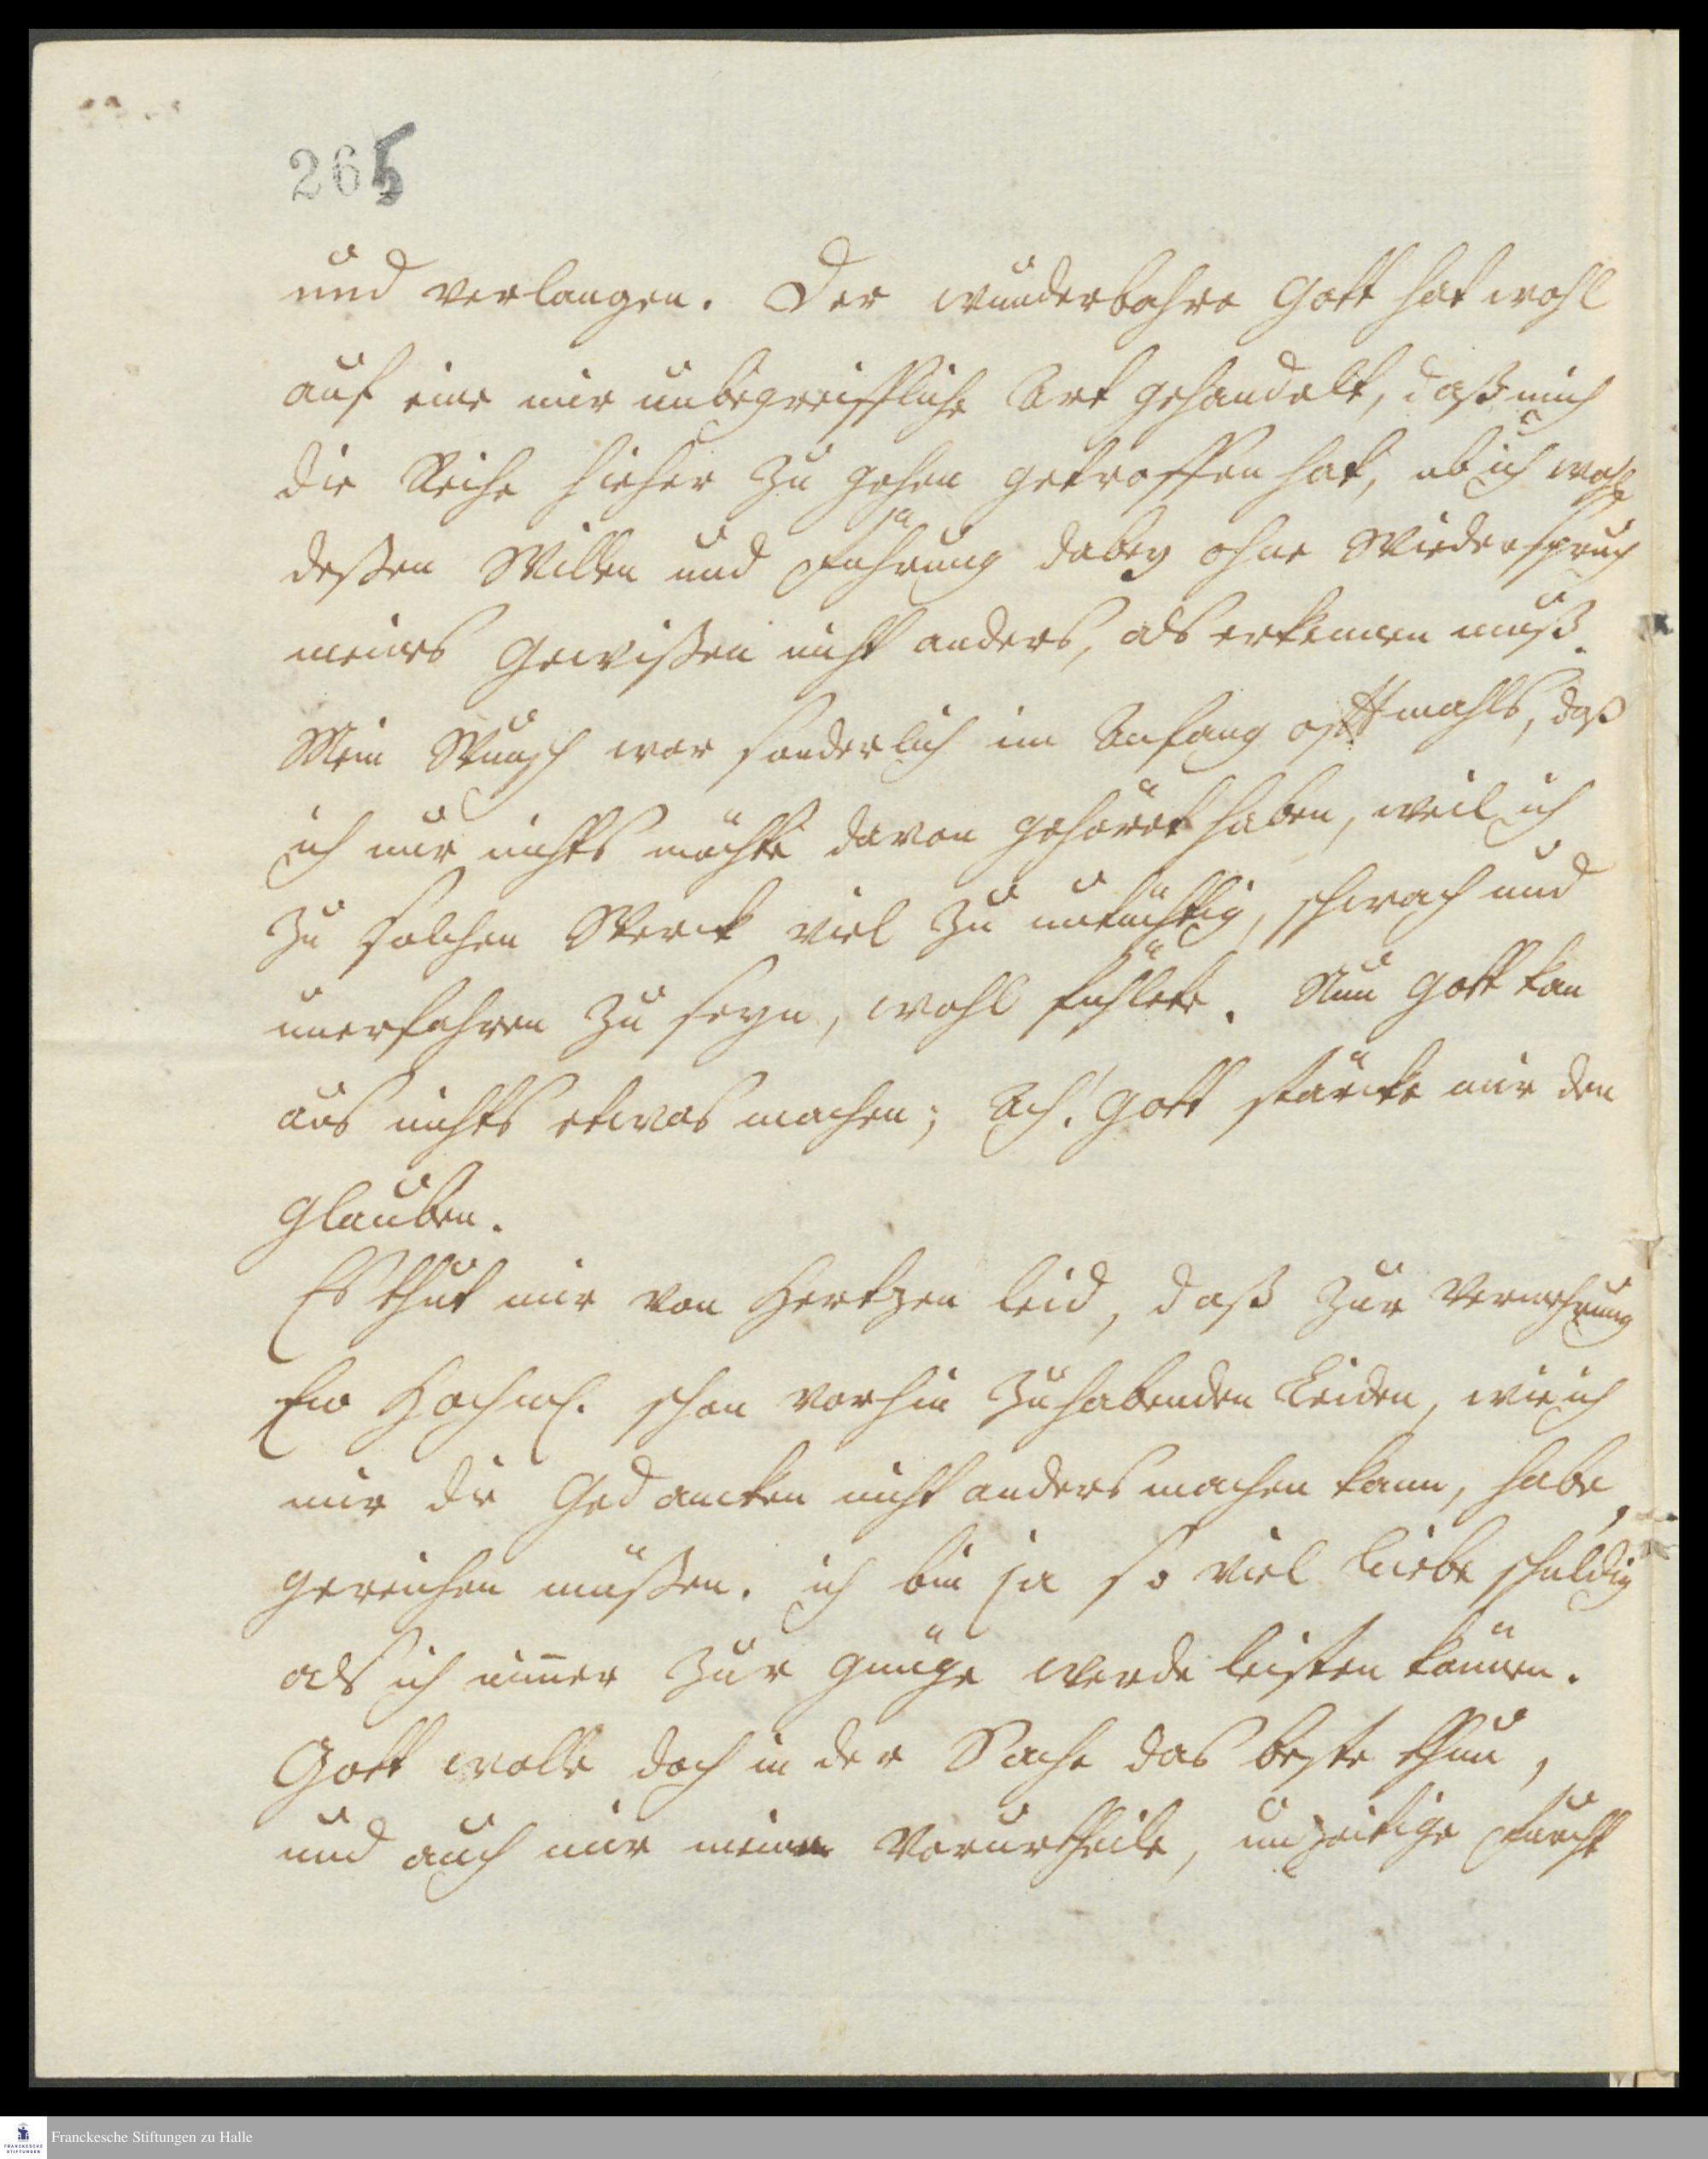 265
und verlangen. Der wunderbahre Gott hat wohl
auf eine mir unbegreiffliche Art gehandelt, daß mich
die Reihe hieher zu gehen getroffen hat, ob ich wohl
deßen Willen und Führung dabey ohne Wiederspruch
meines Gewißen nicht anders, als erkennen muß.
Mein Wunsch war sonderlich im Anfang oftmahls, daß
ich nur nichts möchte davon gehöret haben, weil ich
zu solchen Werck viel zu untüchtig, schwach und
unerfahren zu seyn, wohl fühlete. Nun Gott kan
aus nichts etwas machen; Ach! Gott stärcke mir den
Glauben.
Es thut mir von Hertzen leid, daß zur Vermehrung
Ew Hochw. schon vorhin zuhabenden Leiden, wie ich
mir die Gedancken nicht anders machen kann, habe
gereichen müßen. ich bin ja so viel Liebe schuldig
als ich nim̅er zur gnüge werde leisten können.
Gott wolle doch in der Sache das beste thun,
und auch mir meine Vorurtheile, unzeitige Furcht
Franckesche Stiftungen zu Halle
FRANCKESCHE
STIFTUNGEN